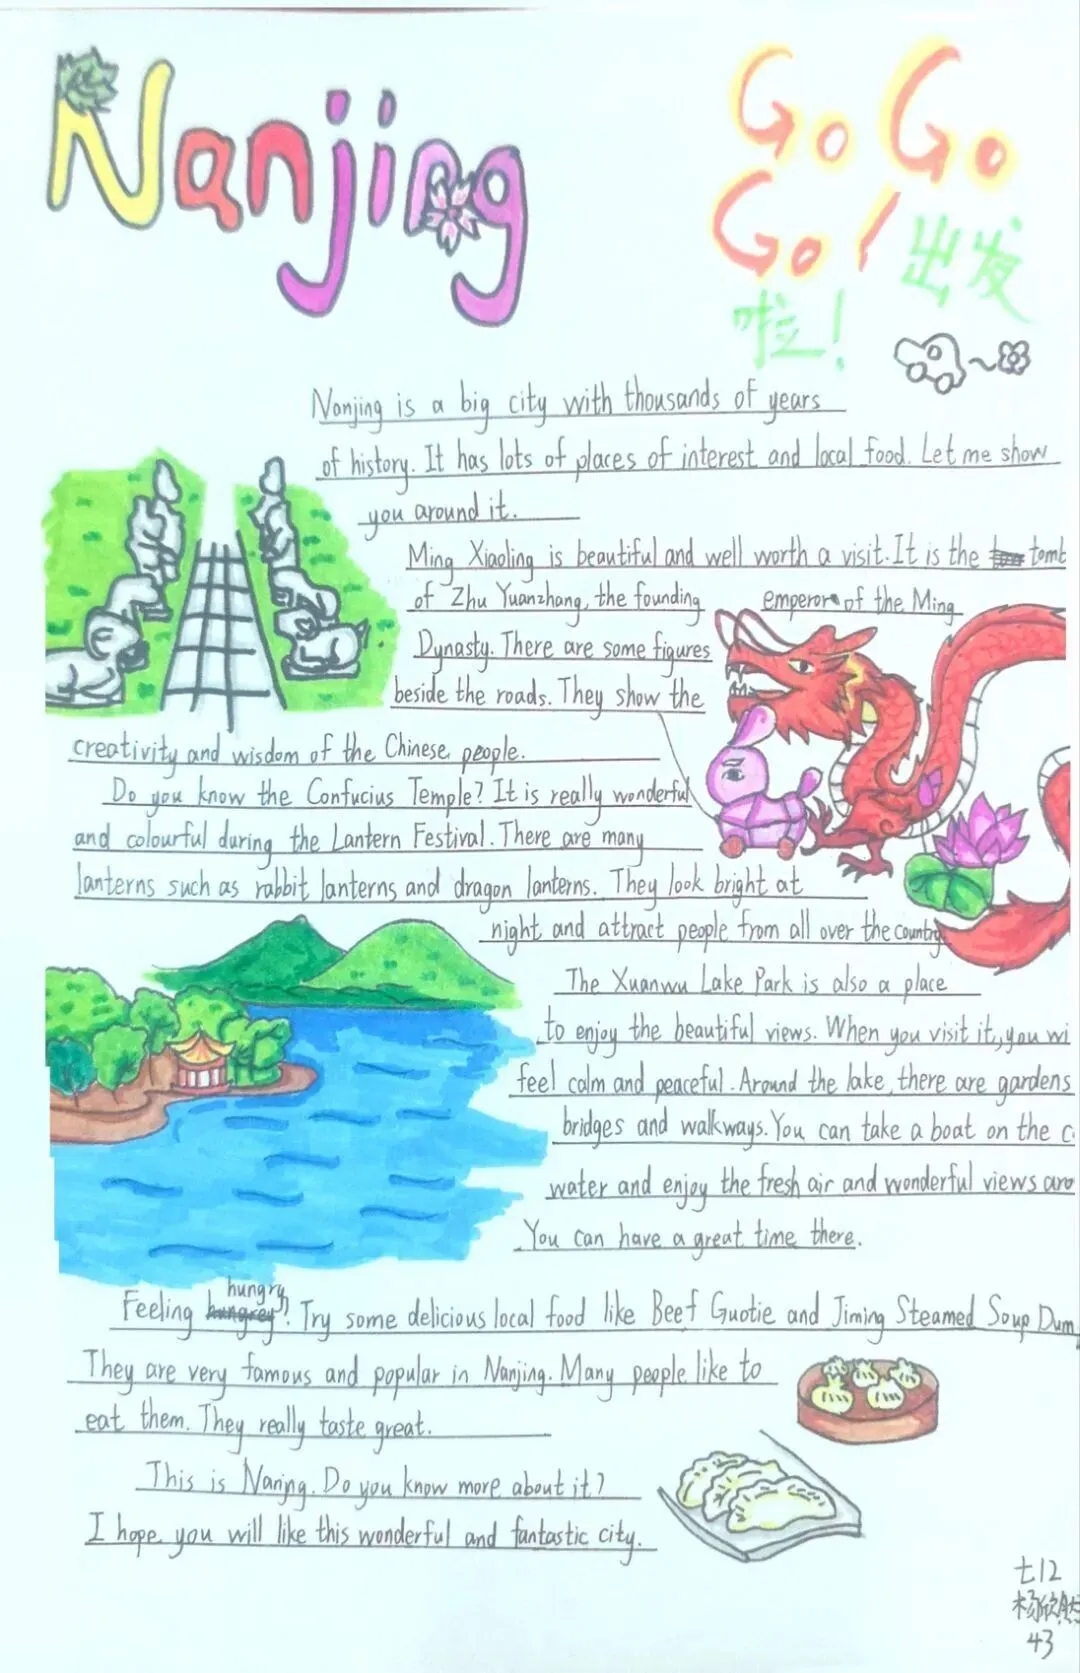 Nanjing
Go Go
Go! 出发
啦!
Nanjing is a big city with thousands of years
of history. It has lots of places of interest and local food. Let me show
you around it.
Ming Xiaoling is beautiful and well worth a visit. It is the tomb
of Zhu Yuanzhang, the founding emperor of the Ming
Dynasty. There are some figures
beside the roads. They show the
creativity and wisdom of the Chinese people.
Do you know the Confucius Temple? It is really wonderful
and colourful during the Lantern Festival. There are many
lanterns such as rabbit lanterns and dragon lanterns. They look bright at
night and attract people from all over the country
The Xuanwu Lake Park is also a place
to enjoy the beautiful views. When you visit it, you wi
feel calm and peaceful. Around the lake, there are gardens
bridges and walkways. You can take a boat on the c
water and enjoy the fresh air and wonderful views aro
You can have a great time there.
Feeling hungry? Try some delicious local food like Beef Guotie and Jiming Steamed Soup Dum
They are very famous and popular in Nanjing. Many people like to
eat them. They really taste great.
This is Nanjng. Do you know more about it?
I hope you will like this wonderful and fantastic city.
七12
杨欣然
43